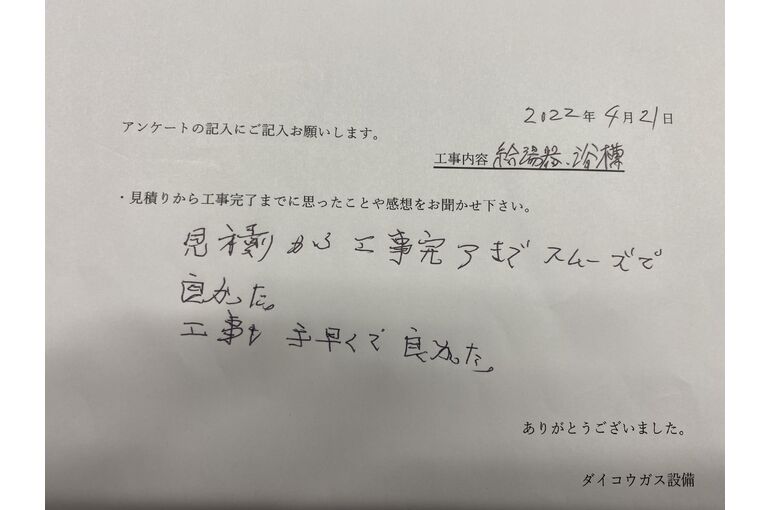 2022年4月21日
アンケートの記入にご記入お願いします。
工事内容 給湯器、浴槽
・見積りから工事完了までに思ったことや感想をお聞かせ下さい。
見積りから工事完了までスムーズで
良かった。
工事も手早くて良かった。
ありがとうございました。
ダイコウガス設備